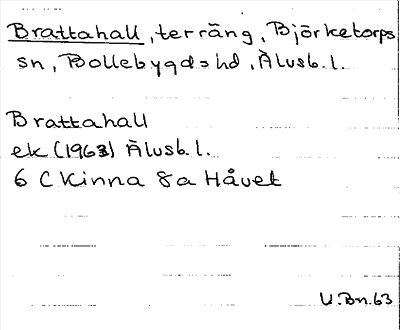 Brattahall, terräng, Björketorps
sn, Bollebygds hd, Älvsb. l.
Brattahall
ek (1963) Älvsb. l.
6 C Kinna 8a Håvet
U.Bn.63